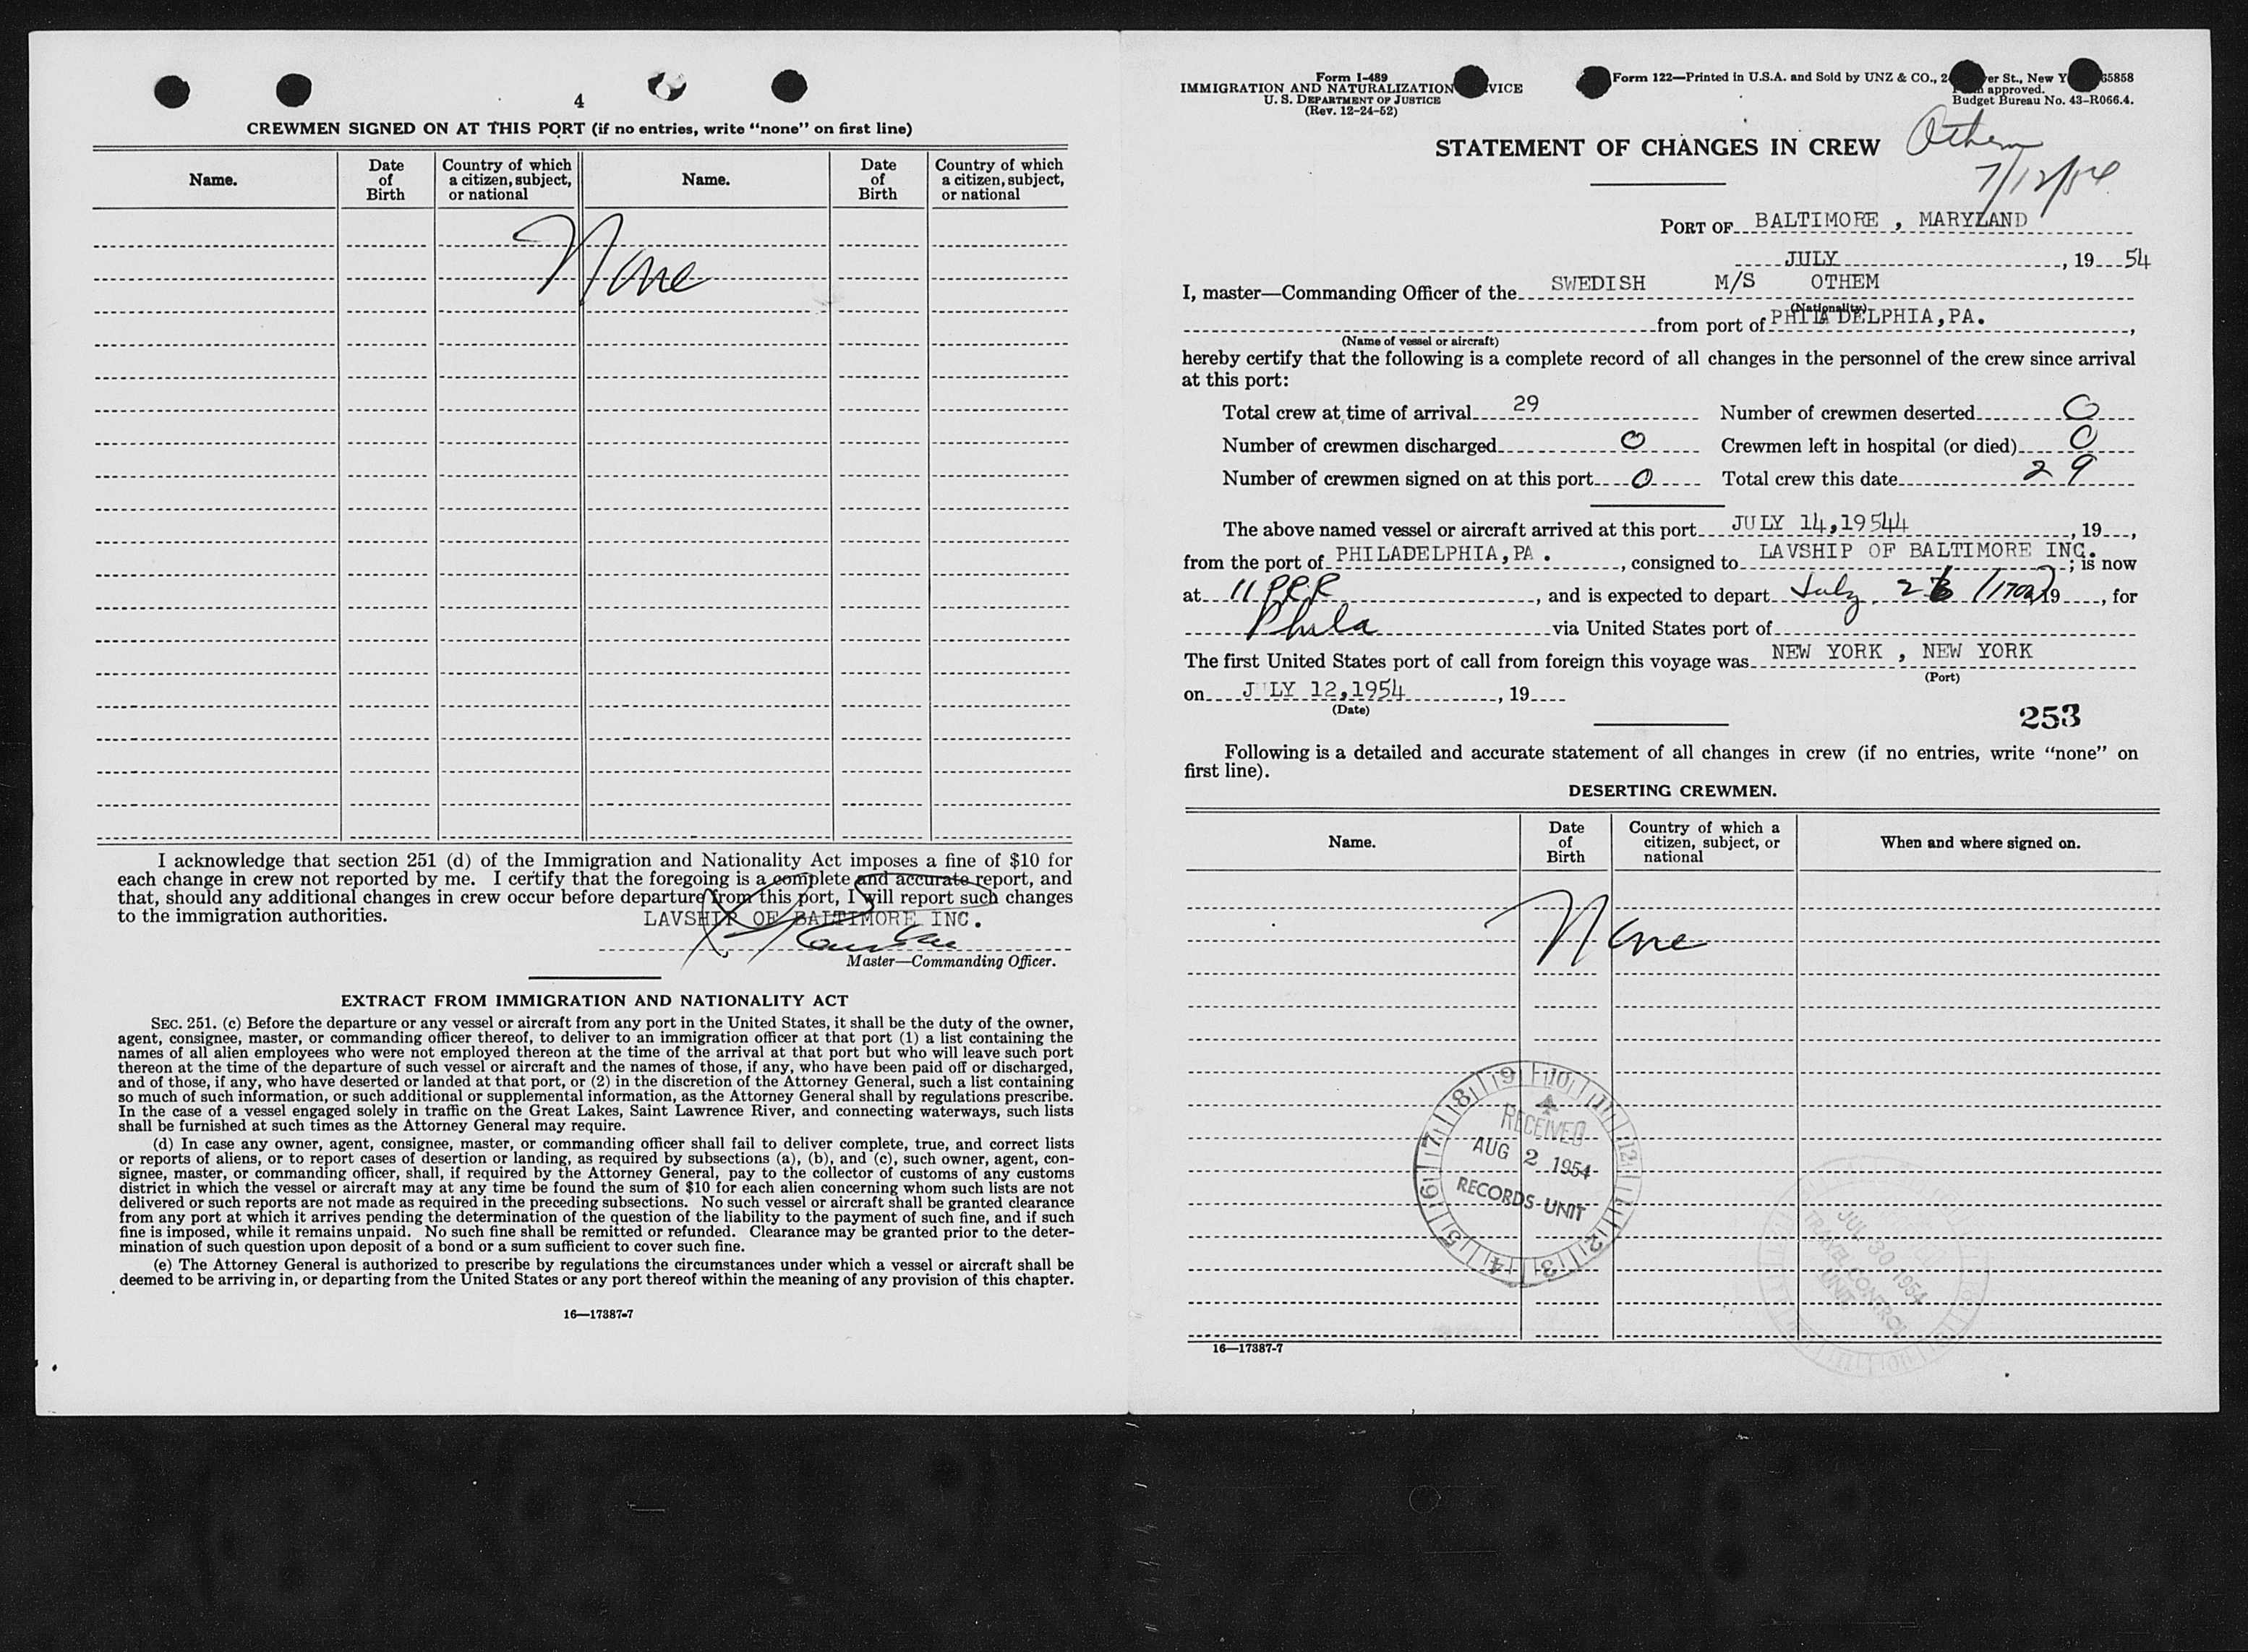 4
CREWMEN SIGNED ON AT THIS PORT (if no entries, write “none” on first line)
Name. Date of Birth Country of which a citizen, subject, or national Name. Date of Birth Country of which a citizen, subject, or national
None
I acknowledge that section 251 (d) of the Immigration and Nationality Act imposes a fine of $10 for
each change in crew not reported by me. I certify that the foregoing is a complete and accurate report, and
that, should any additional changes in crew occur before departure from this port, I will report such changes
to the immigration authorities.
LAVSHIP OF BALTIMORE INC.
Master—Commanding Officer.
EXTRACT FROM IMMIGRATION AND NATIONALITY ACT
SEC. 251. (c) Before the departure or any vessel or aircraft from any port in the United States, it shall be the duty of the owner,
agent, consignee, master, or commanding officer thereof, to deliver to an immigration officer at that port (1) a list containing the
names of all alien employees who were not employed thereon at the time of the arrival at that port but who will leave such port
thereon at the time of the departure of such vessel or aircraft and the names of those, if any, who have been paid off or discharged,
and of those, if any, who have deserted or landed at that port, or (2) in the discretion of the Attorney General, such a list containing
so much of such information, or such additional or supplemental information, as the Attorney General shall by regulations prescribe.
In the case of a vessel engaged solely in traffic on the Great Lakes, Saint Lawrence River, and connecting waterways, such lists
shall be furnished at such times as the Attorney General may require.
(d) In case any owner, agent, consignee, master, or commanding officer shall fail to deliver complete, true, and correct lists
or reports of aliens, or to report cases of desertion or landing, as required by subsections (a), (b), and (c), such owner, agent, con-
signee, master, or commanding officer, shall, if required by the Attorney General, pay to the collector of customs of any customs
district in which the vessel or aircraft may at any time be found the sum of $10 for each alien concerning whom such lists are not
delivered or such reports are not made as required in the preceding subsections. No such vessel or aircraft shall be granted clearance
from any port at which it arrives pending the determination of the question of the liability to the payment of such fine, and if such
fine is imposed, while it remains unpaid. No such fine shall be remitted or refunded. Clearance may be granted prior to the deter-
mination of such question upon deposit of a bond or a sum sufficient to cover such fine.
(e) The Attorney General is authorized to prescribe by regulations the circumstances under which a vessel or aircraft shall be
deemed to be arriving in, or departing from the United States or any port thereof within the meaning of any provision of this chapter.
16—17387-7
Form I-489
IMMIGRATION AND NATURALIZATION VICE
U. S. DEPARTMENT OF JUSTICE
(Rev. 12-24-52)
Form 122—Printed in U.S.A. and Sold by UNZ & CO., 2 er St., New Y 65858
approved.
Budget Bureau No. 43-R066.4.
STATEMENT OF CHANGES IN CREW
Othem
7/12/54
PORT OF BALTIMORE , MARYLAND
JULY , 19 54
I, master—Commanding Officer of the SWEDISH M/S OTHEM
(Nationality)
from port of PHILADELPHIA,PA. ,
(Name of vessel or aircraft)
hereby certify that the following is a complete record of all changes in the personnel of the crew since arrival
at this port:
Total crew at time of arrival 29 Number of crewmen deserted 0
Number of crewmen discharged 0 Crewmen left in hospital (or died) 0
Number of crewmen signed on at this port 0 Total crew this date 29
The above named vessel or aircraft arrived at this port JULY 14,19544 , 19 ,
from the port of PHILADELPHIA,PA . , consigned to LAVSHIP OF BALTIMORE INC. ; is now
at 11 PRR , and is expected to depart July 19 , for
Phila via United States port of
The first United States port of call from foreign this voyage was NEW YORK , NEW YORK
(Port)
on J LY 12,1954 , 19
(Date)
253
Following is a detailed and accurate statement of all changes in crew (if no entries, write “none” on
first line).
DESERTING CREWMEN.
Name. Date of Birth Country of which a citizen, subject, or national When and where signed on.
None
RECEIVED
AUG 2 1954
RECORDS UNIT
9 10 11 12 1 2 3 4 5 6 7 8
JUL 30 1954
TRAVEL CONTROL
UNIT
16—17387-7